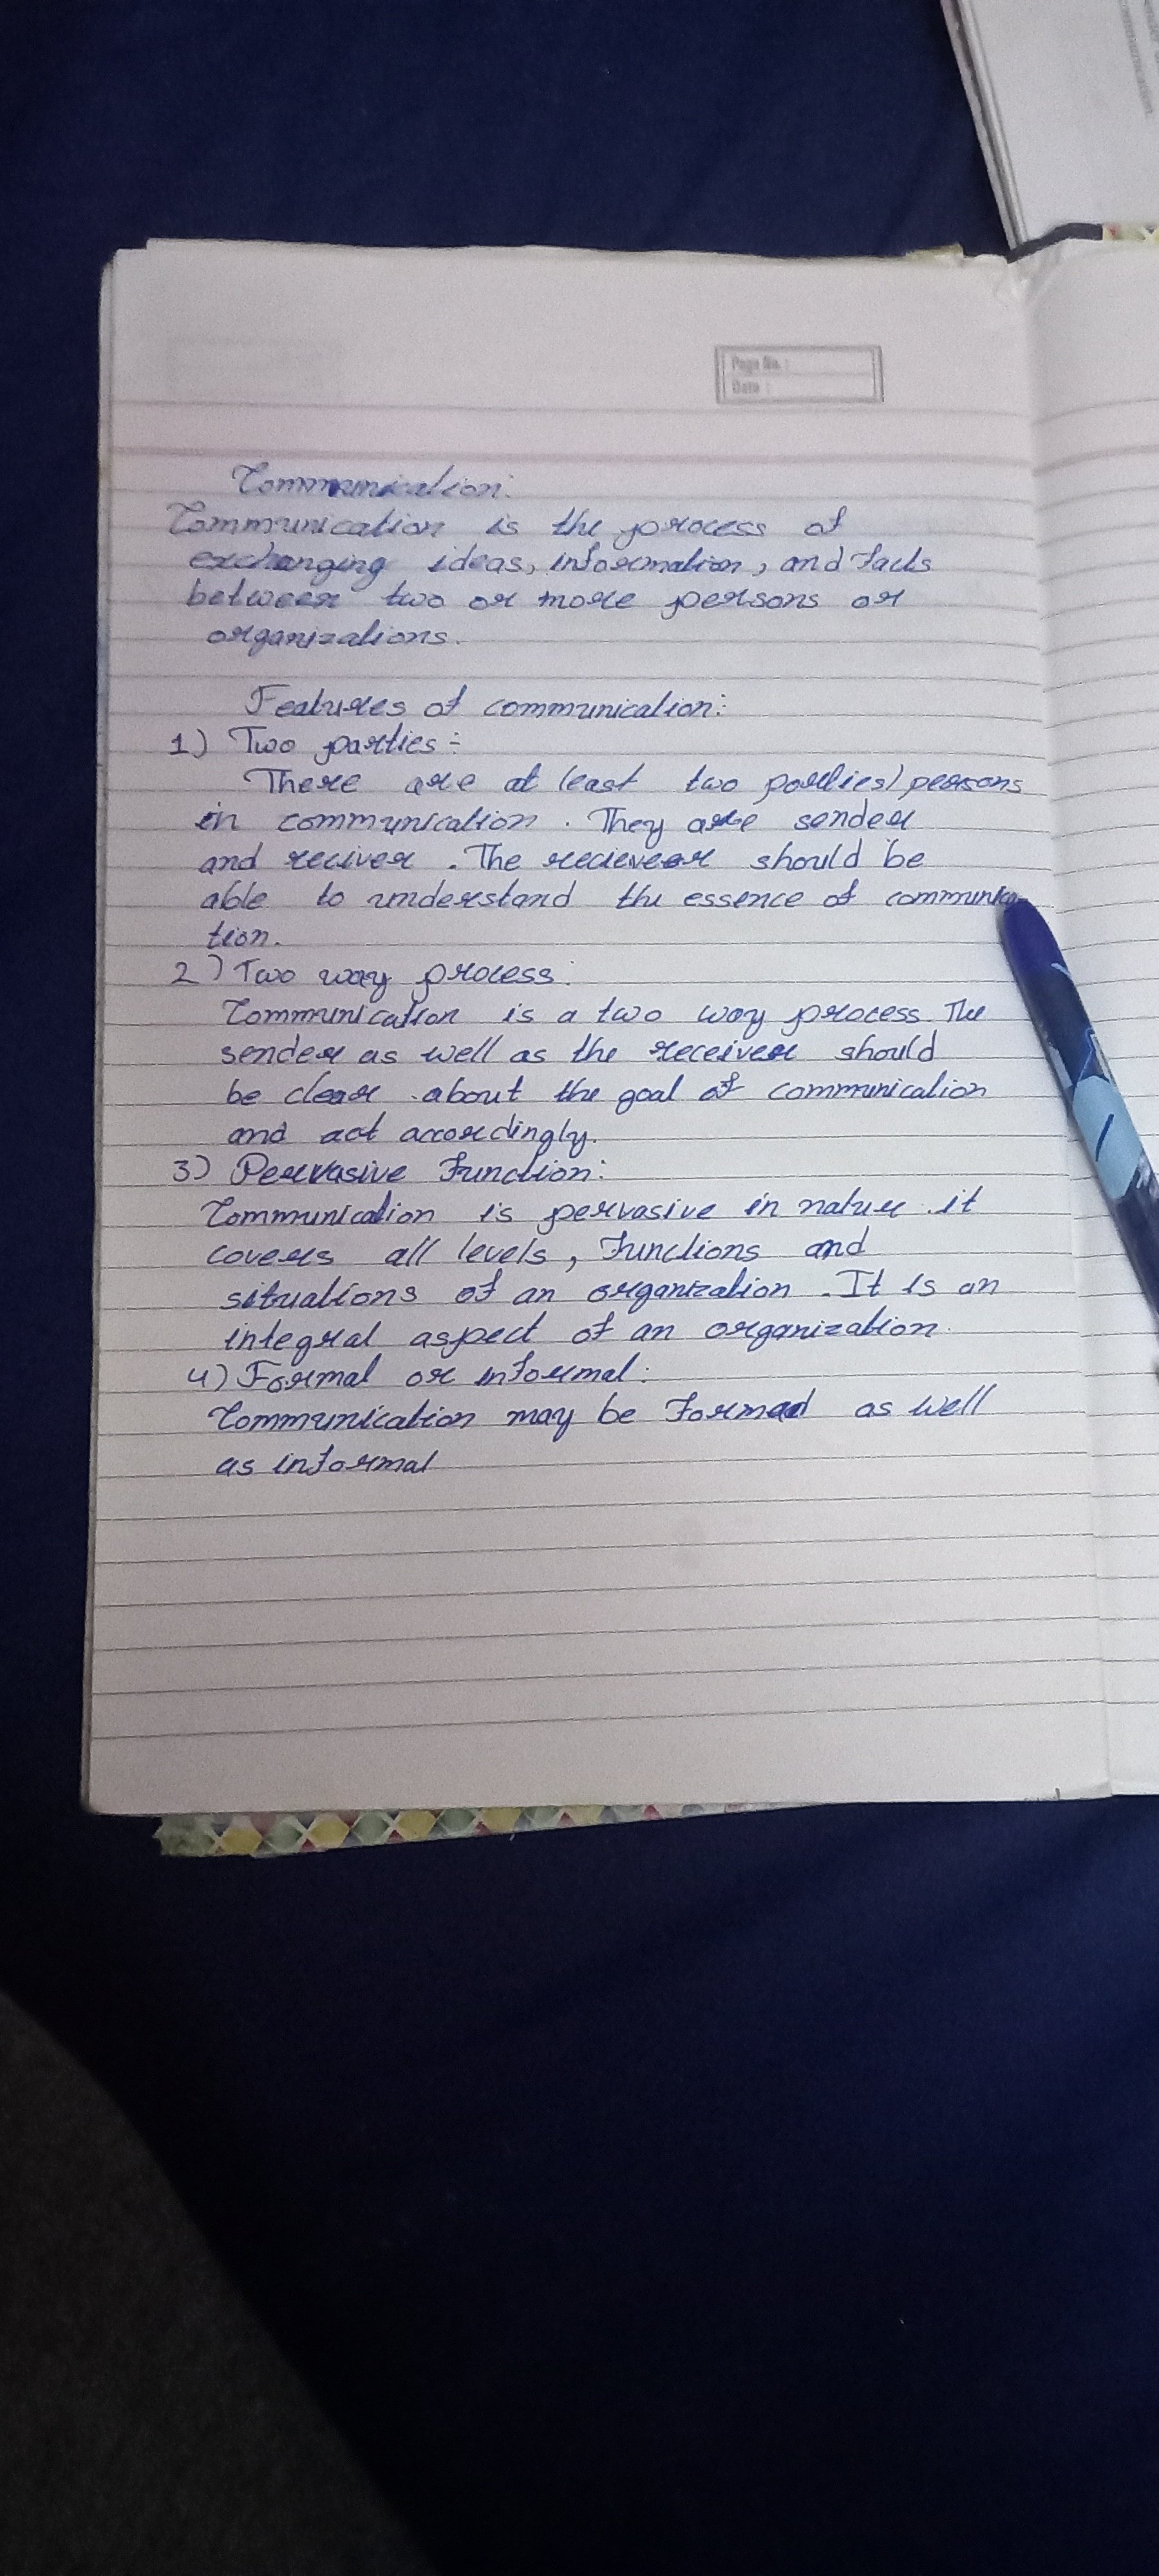 Page No. :
Date :
Communication:
Communication is the process of
exchanging ideas, information, and facts
between two or more persons or
organizations.
Features of communication:
1) Two parties :-
There are at least two parties/persons
in communication. They are sender
and reciver. The reciever should be
able to understand the essence of communica-
tion.
2) Two way process:
Communication is a two way process. The
sender as well as the receiver should
be clear about the goal of communication
and act accordingly.
3) Pervasive Function:
Communication is pervasive in nature. it
covers all levels, functions and
situations of an organization. It is an
integral aspect of an organization.
4) Formal or informal:
Communication may be formal as well
as informal